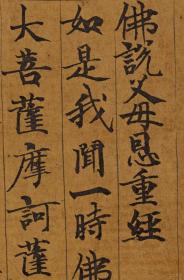 佛説父母恩重經
如是我聞一時佛
大菩薩摩訶薩